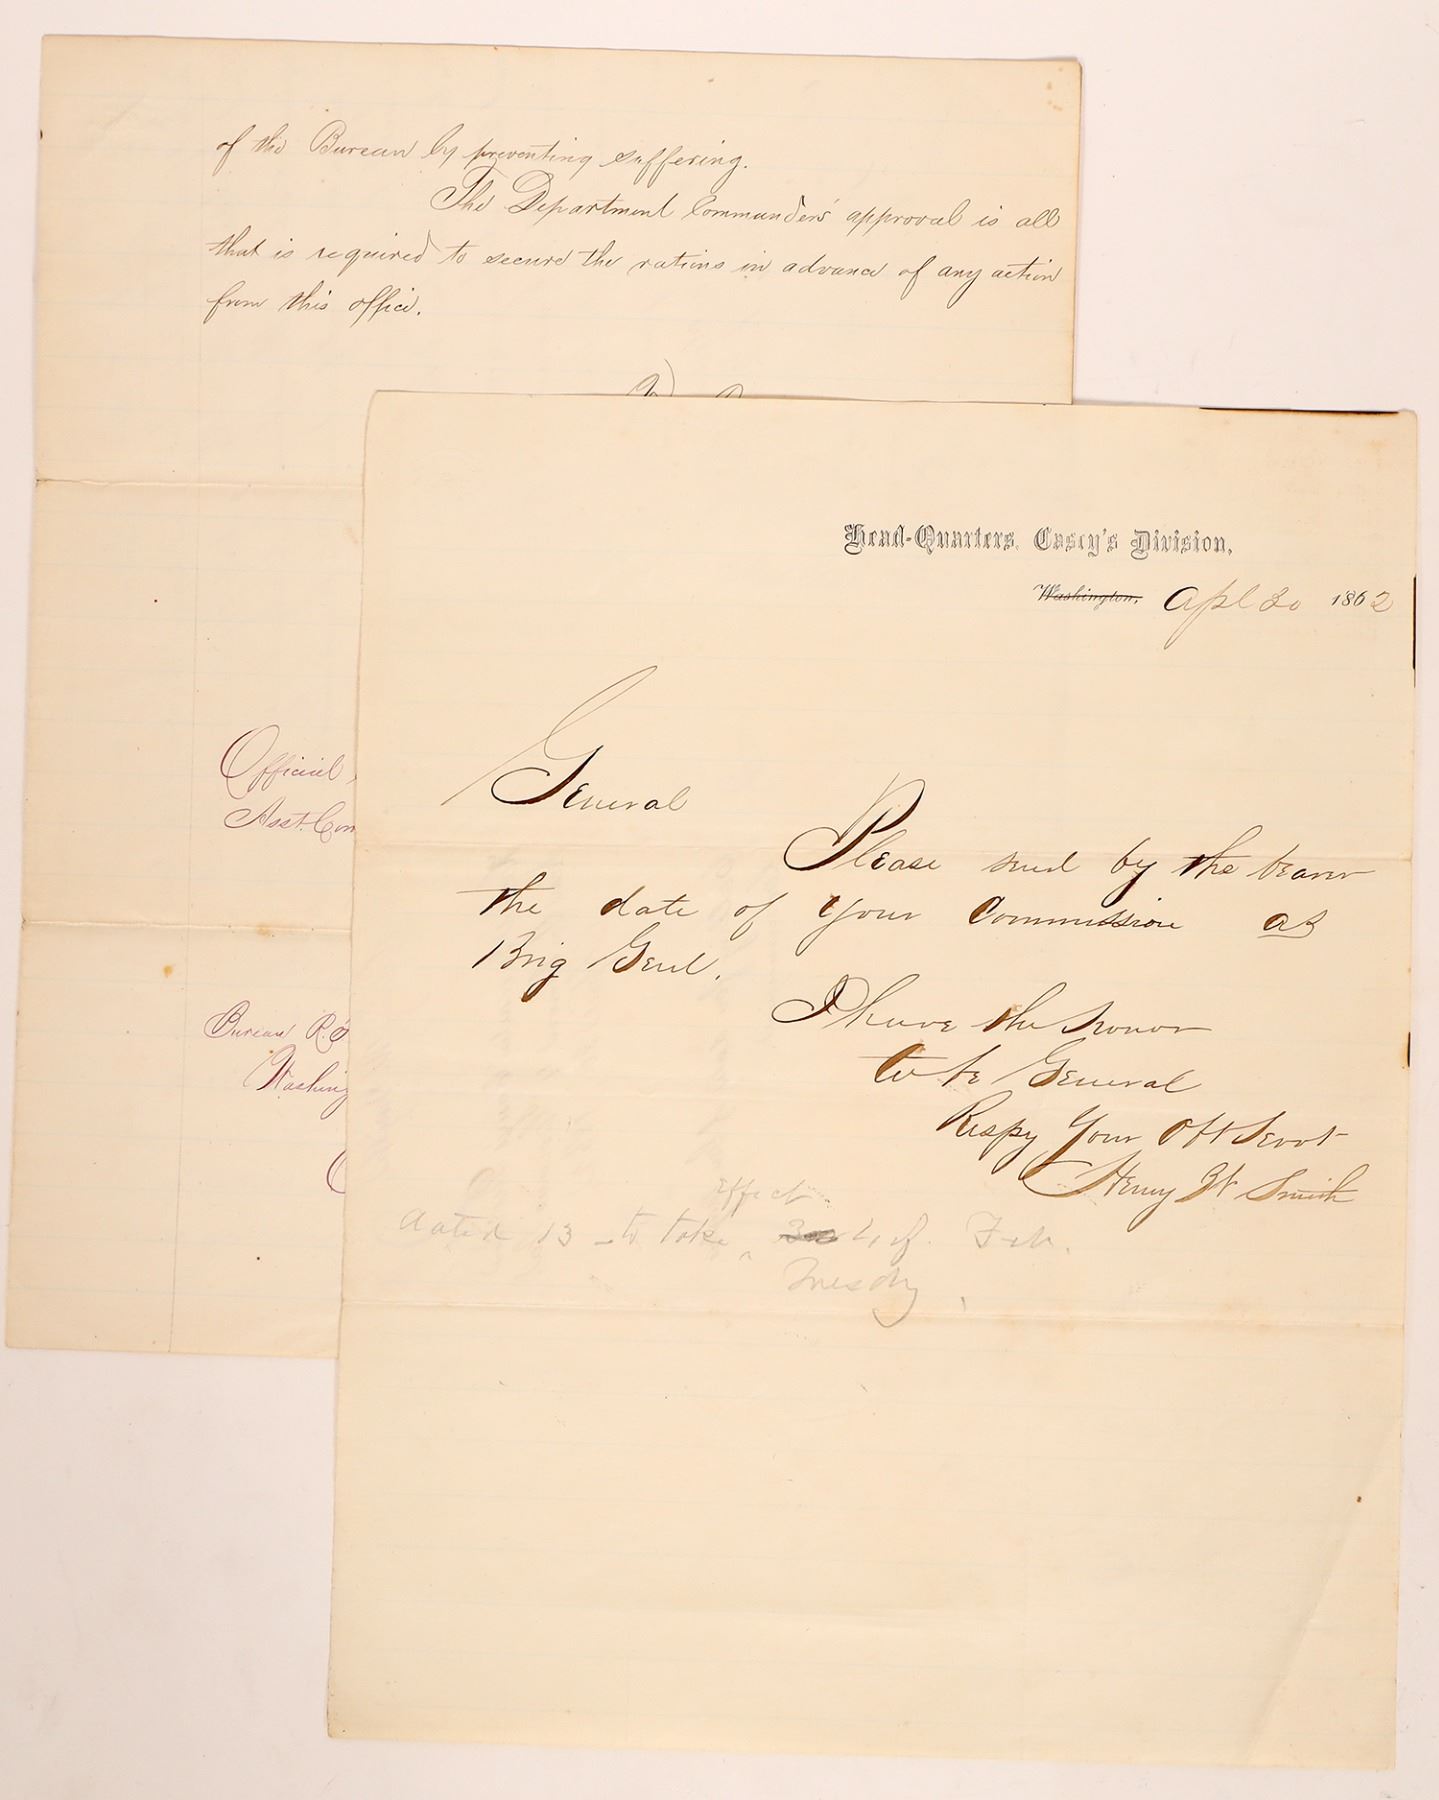 of the Bureau by preventing suffering.
The Department Commanders' approval is all
that is required to secure the rations in advance of any action
from this office.
Official,
Asst. Com
Bureau R.
Washing
Head-Quarters, Casey's Division,
Washington, Apl 30 1862
General
Please send by the bearer
the date of your Commission as
Brig Genl.
I have the honor
to be General
Respy Your Obt Servt
Henry W Smith
Effect
dated 13 - to take 4 of. Feb.
Tuesday